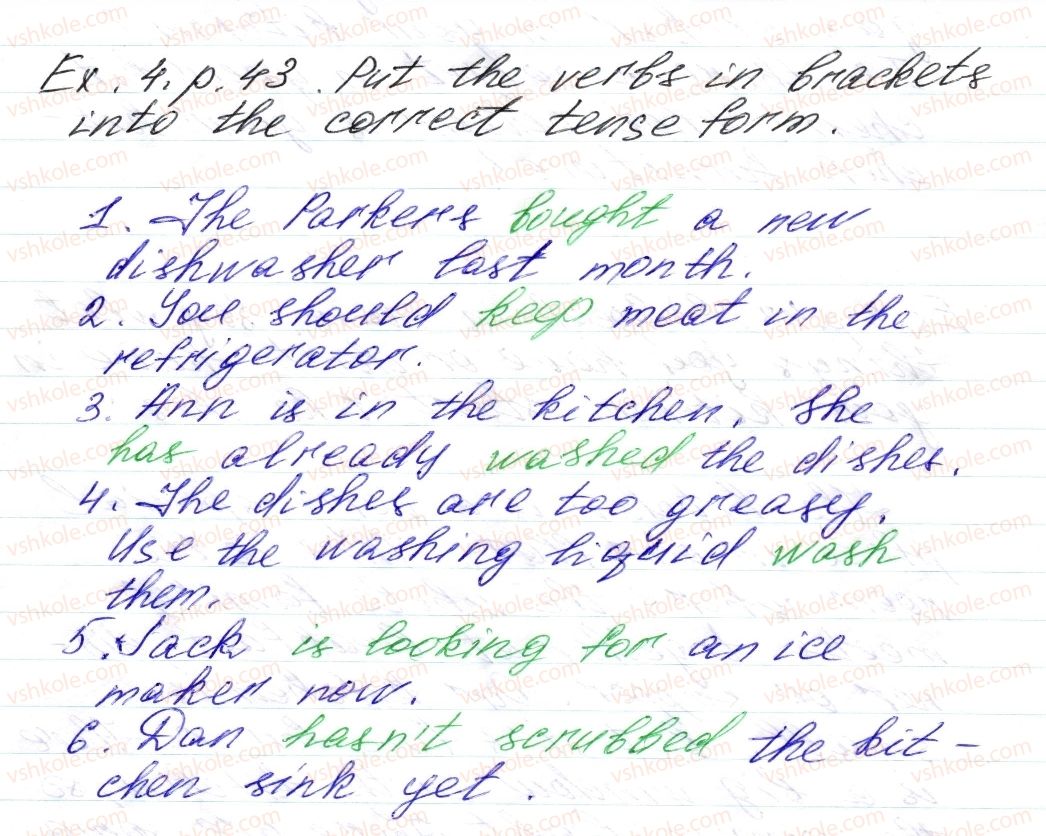 Ex. 4. p. 43. Put the verbs in brackets
into the correct tense form.
1. The Parkers bought a new
dishwasher last month.
2. You should keep meat in the
refrigerator.
3. Ann is in the kitchen. She
has already washed the dishes.
4. The dishes are too greasy.
Use the washing liquid wash
them.
5. Jack is looking for an ice
maker now.
6. Dan hasn't scrubbed the kit-
chen sink yet.